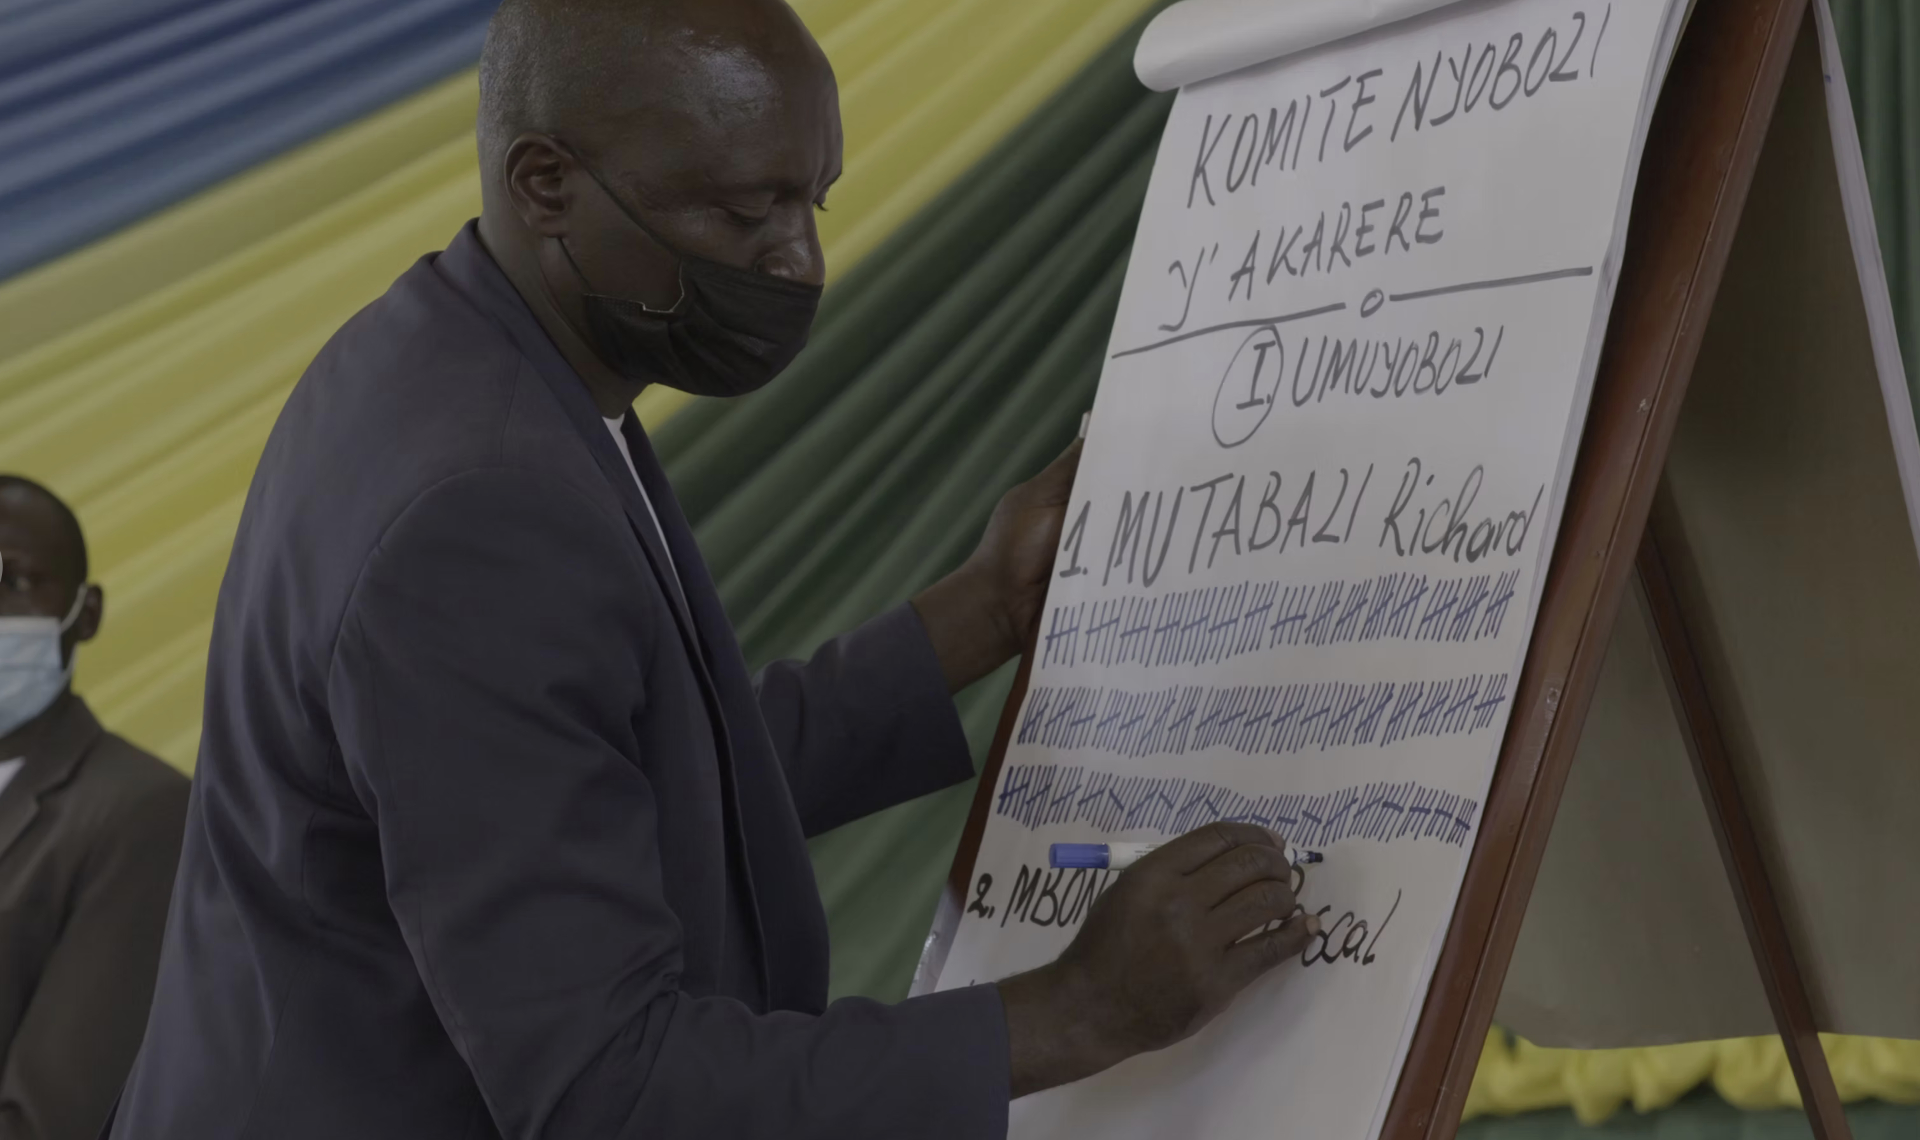 KOMITE NYOBOZI
Y' AKARERE
I. UMUYOBOZI
1. MUTABAZI Richard
2.